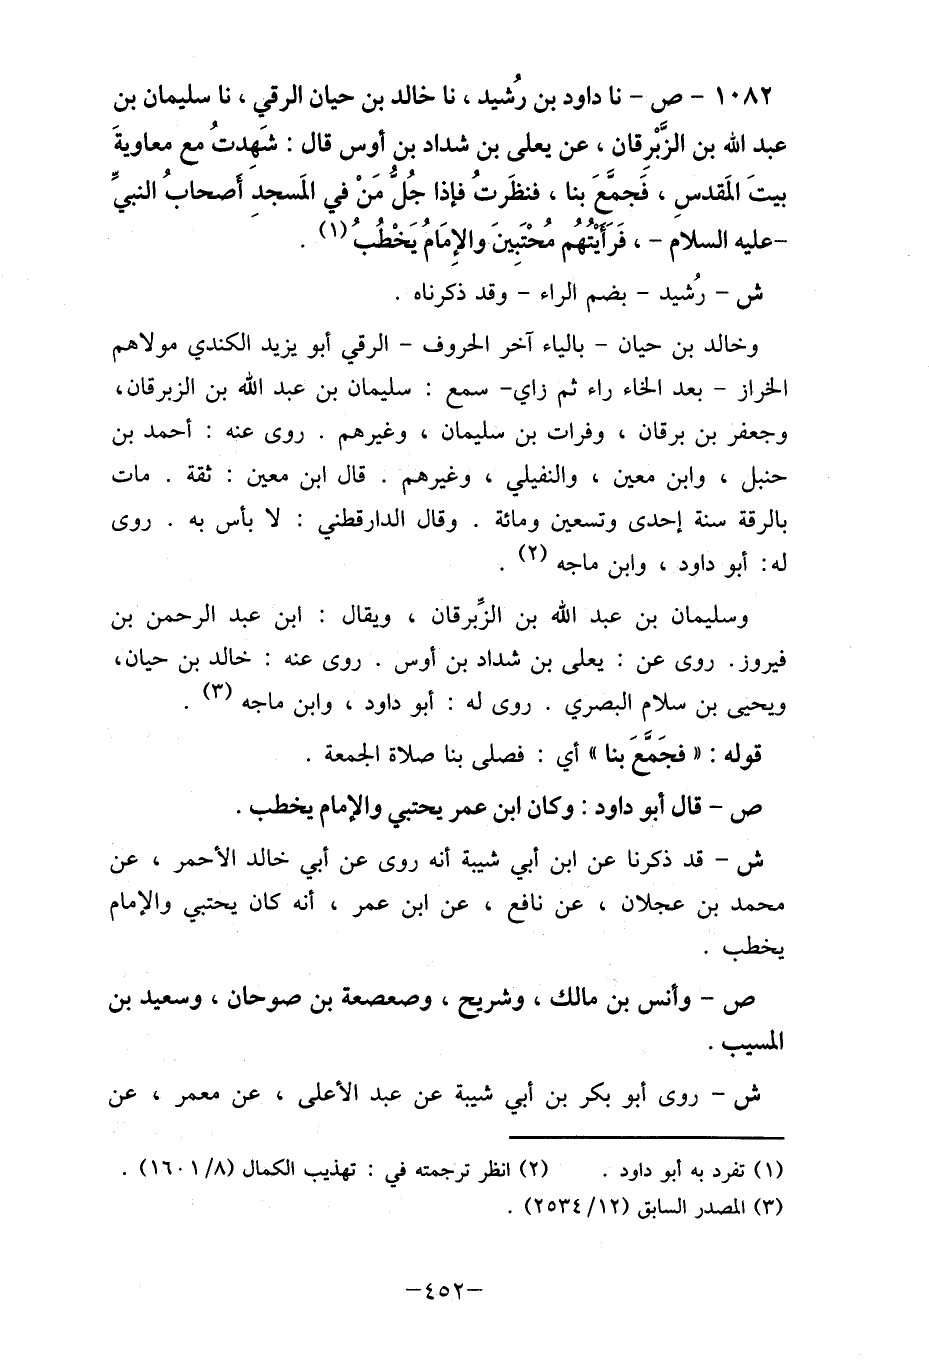 ١٠٨٢ - ص - نا داود بن رُشيد ، نا خالد بن حيان الرقي ، نا سليمان بن
عبد الله بن الزِّبْرِقان ، عن يعلى بن شداد بن أوس قال : شَهِدتُ مع معاويةَ
بيتَ المَقدسِ ، فَجمَّعَ بنا ، فنظَرتُ فإذا جُلُّ مَنْ في المَسجدِ أَصحابُ النبيِّ
-عليه السلام - ، فَرَأَيْتُهُم مُحْتَبِينَ والإِمَامُ يَخْطُبُ (١) .
ش - رُشيد - بضم الراء - وقد ذكرناه .
وخالد بن حيان - بالياء آخر الحروف - الرقي أبو يزيد الكندي مولاهم
الخراز - بعد الخاء راء ثم زاي- سمع : سليمان بن عبد الله بن الزبرقان،
وجعفر بن برقان ، وفرات بن سليمان ، وغيرهم . روى عنه : أحمد بن
حنبل ، وابن معين ، والنفيلي ، وغيرهم . قال ابن معين : ثقة . مات
بالرقة سنة إحدى وتسعين ومائة . وقال الدارقطني : لا بأس به . روى
له: أبو داود ، وابن ماجه (٢) .
وسليمان بن عبد الله بن الزِّبرقان ، ويقال : ابن عبد الرحمن بن
فيروز. روى عن : يعلى بن شداد بن أوس . روى عنه : خالد بن حيان،
ويحيى بن سلام البصري . روى له : أبو داود ، وابن ماجه (٣) .
قوله : « فجَمَّعَ بنا » أي : فصلى بنا صلاة الجمعة .
ص - قال أبو داود : وكان ابن عمر يحتبي والإمام يخطب .
ش - قد ذكرنا عن ابن أبي شيبة أنه روى عن أبي خالد الأحمر ، عن
محمد بن عجلان ، عن نافع ، عن ابن عمر ، أنه كان يحتبي والإمام
يخطب .
ص - وأنس بن مالك ، وشريح ، وصعصعة بن صوحان ، وسعيد بن
المسيب .
ش - روى أبو بكر بن أبي شيبة عن عبد الأعلى ، عن معمر ، عن
(١) تفرد به أبو داود . (٢) انظر ترجمته في : تهذيب الكمال (١٦٠١/٨) .
(٣) المصدر السابق (٢٥٣٤/١٢) .
-٤٥٢-